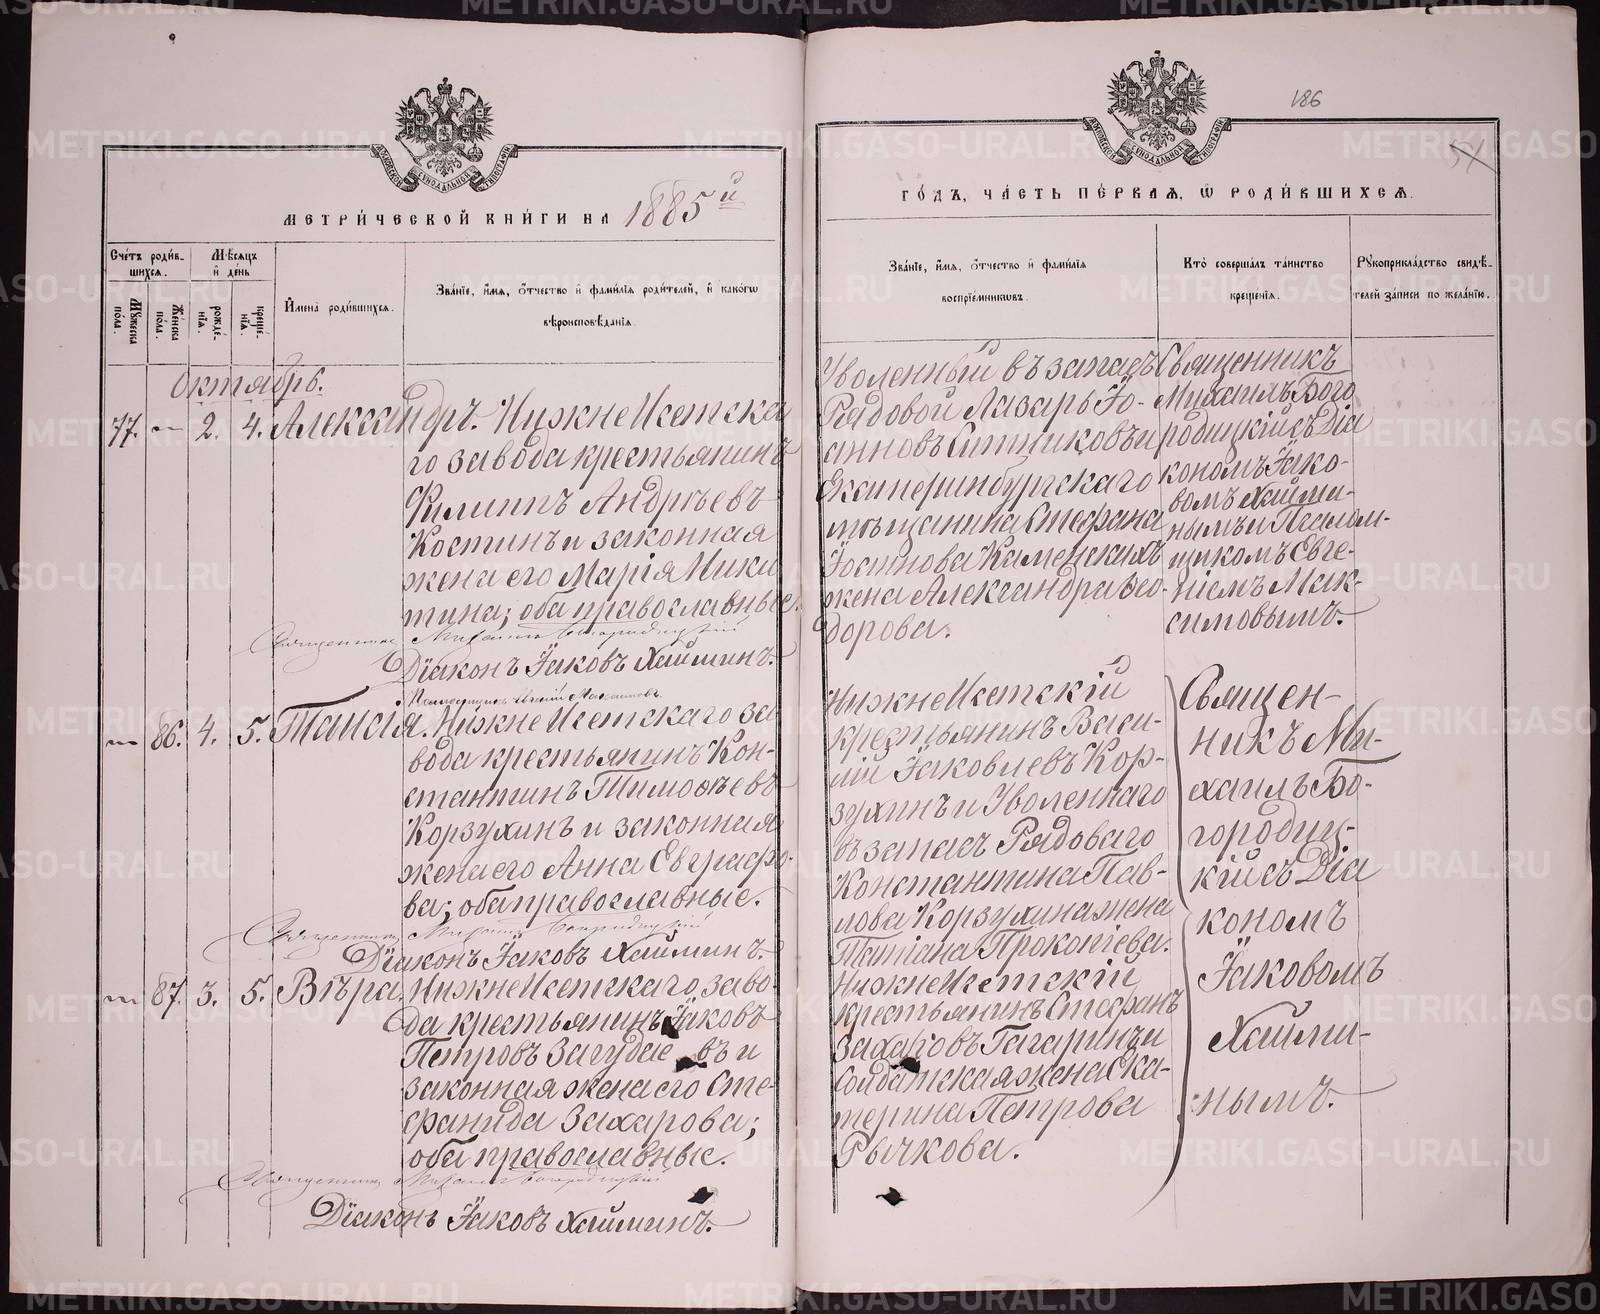 METRIKI.GASO-URAL.RU
186
54
МОСКОВСКОЙ СѴНОДАЛЬНОЙ ТИПОГРАФІИ
МОСКОВСКОЙ СѴНОДАЛЬНОЙ ТИПОГРАФІИ
МЕТРИ́ЧЕСКОЙ КНИ́ГИ НА 1885й
ГО́ДЪ, ЧА́СТЬ ПЕ́РВАЯ, Ѡ РОДИ́ВШИХСЯ.
Сче́тъ роди́в-
шихся.
Му́жеска
по́ла.
Же́нска
по́ла.
Мѣ́сяцъ
и́ де́нь
рожде́-
нїя.
креще́-
нїя.
И҆мена роди́вшихся.
Зва́нїе, и҆́мя, ѻ҆́тчество и҆ фами́лїя роди́телей, и҆ како́гѡ
вѣроисповѣ́данїя.
Зва́нїе, и҆́мя, ѻ҆́тчество и҆ фами́лїя
воспрїе́мникѡвъ.
Кто̀ соверша́лъ та́инство
креще́нїя.
Рꙋкоприкла́дство свидѣ́-
телей за́писи по жела́нїю.
Октябрь.
77. — 2. 4. Александръ. НижнеИсетска
го завода крестьянинъ
Филиппъ Андрѣевъ
Костинъ и законная
жена его Марія Ники
тина; оба православные.
Священникъ Михаилъ Богородицкій
Діаконъ Іаковъ Хайминъ.
Псаломщикъ Евгеній Максимовъ.
Уволенный въ запасъ
Рядовой Лазарь Іо-
анновъ Ситниковъ и
Екатеринбургскаго
мѣщанина Стефана
Іоаннова Каменскихъ
жена Александра Ѳео-
дорова.
Священникъ
Михаилъ Бого
родицкій съ Діа
кономъ Іако-
вомъ Хайми-
нымъ и Псалом-
щикомъ Евге-
ніемъ Мак-
симовымъ.
— 86. 4. 5. Таисія. НижнеИсетскаго за
вода крестьянинъ Кон-
стантинъ Тимоѳеевъ
Корзухинъ и законная
жена его Анна Евграфо-
ва; оба православные.
Священникъ Михаилъ Богородицкій
Діаконъ Іаковъ Хайминъ.
НижнеИсетскій
крестьянинъ Васи-
лій Іаковлевъ Кор-
зухинъ и Уволеннаго
въ запасъ Рядоваго
Константина Пав-
лова Корзухина жена
Татіана Прокопіева.
Священ-
никъ Ми-
хаилъ Бо-
городиц-
кій съ Діа
кономъ
Іаковомъ
Хайми-
нымъ.
— 87. 3. 5. Вѣра. НижнеИсетскаго заво-
да крестьянинъ Іаковъ
Петровъ въ и
законная жена его Сте-
фанида Захарова;
оба православные.
Священникъ Михаилъ Богородицкій
Діаконъ Іаковъ Хайминъ.
НижнеИсетскій
крестьянинъ Стефанъ
Захаровъ Гагаринъ и
Солдатская жена Ека-
терина Петрова
Рычкова.